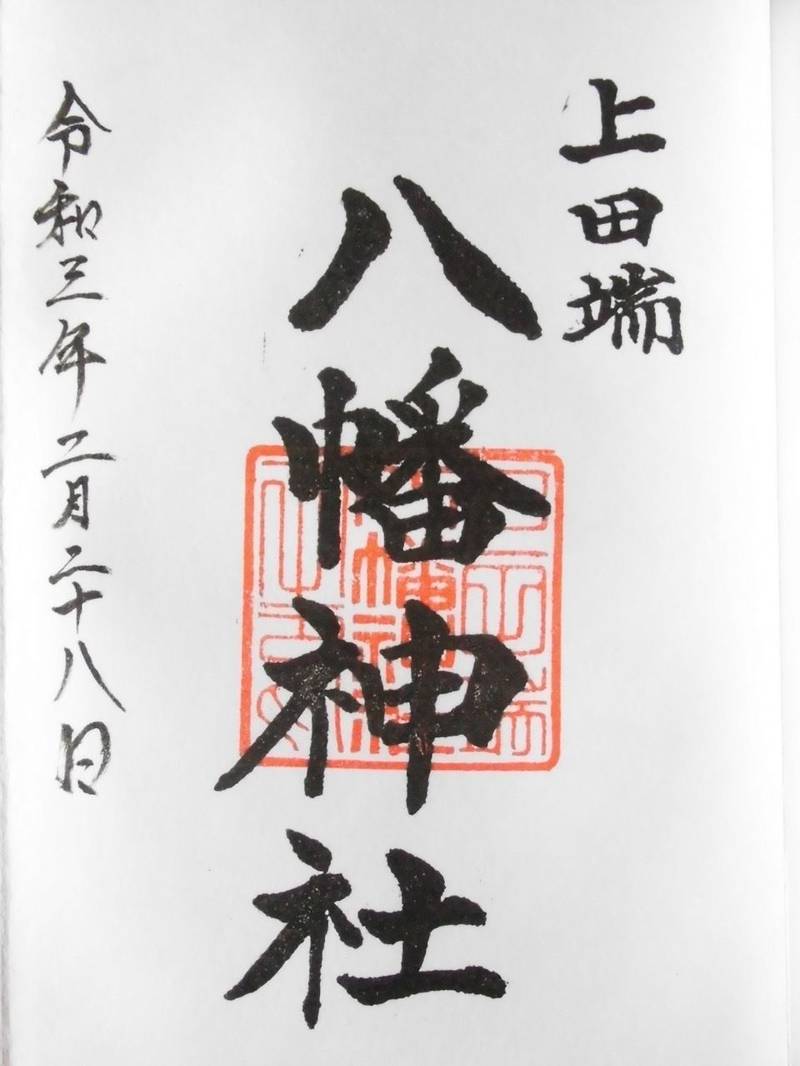 上田端
八幡神社
令和三年二月二十八日